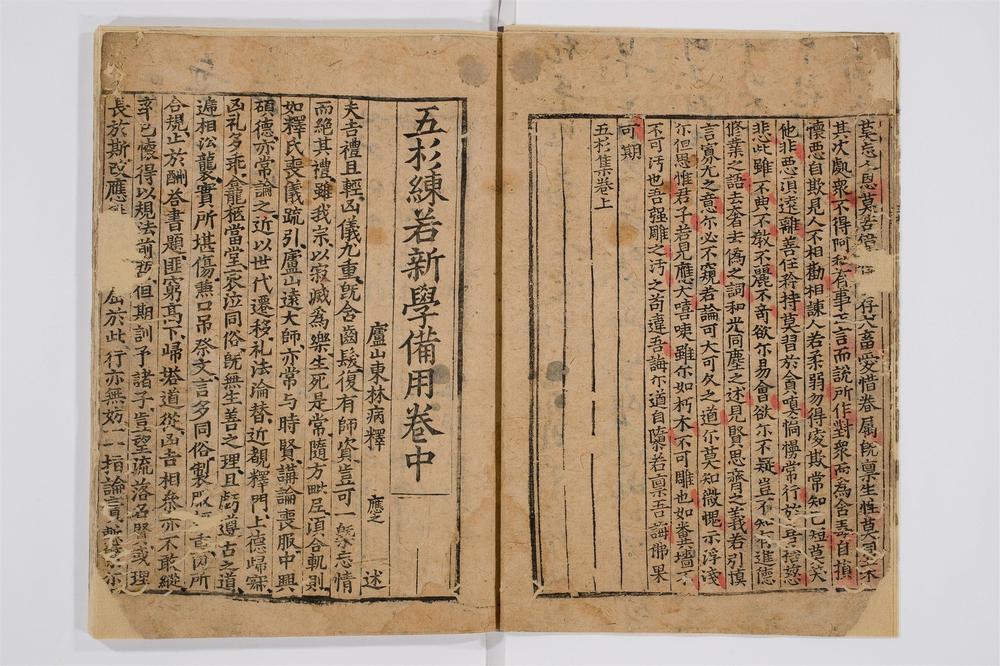 莫忘人恩莫苦存六畜愛惜眷屬旣禀生性莫同土木
其次處衆不得阿私有事言而說所作對衆而為舍自損
懷惡自欺見人不相勸相諫人若柔弱勿得凌欺常知己短莫笑
他非惡須遠離善任矜持莫習於貪嗔慵懶常行於
悲此雖不典不敎不麗不竒欲尓易會欲尓不疑豈不知進德
修業之語去奢去僞之詞和光同塵之述見賢思齊之義若引慎
言寡尤之意尓必不窺若論可大可久之道尓莫知微愧示浮淺
尓但思惟君子若見應大嘻唉雖尓如朽木不可雕也如糞墻
不可汚也吾强雕之汚之苟違吾誨尓道自隳若禀吾誨佛果
可期
五杉集卷上
五杉練若新學備用卷中
廬山東林病釋 應之 述
夫吉禮且輕凶儀九重旣含齒髮復有師資豈可一槩忘情
而絕其禮雖我宗以寂滅為樂生死是常隨方毗尼須合軌則
如釋氏喪儀疏引廬山遠大師亦常与時賢講論喪服中興
碩德亦常論之近以世代遷移礼法淪替近覩釋門上德歸寂
凶礼多乖龕柩當堂哀泣同俗旣無生善之理且虧遵古之道
遞相沿襲實所堪傷兼口吊祭文言多同俗製所
合規止於酬荅書題匪窮髙下歸塔道從凶吉相叅亦不敢縱
辛已懷得以規法前但期訓予諸子豈望流落名賢或理
長於斯改應屈於此行亦無妨一一指論